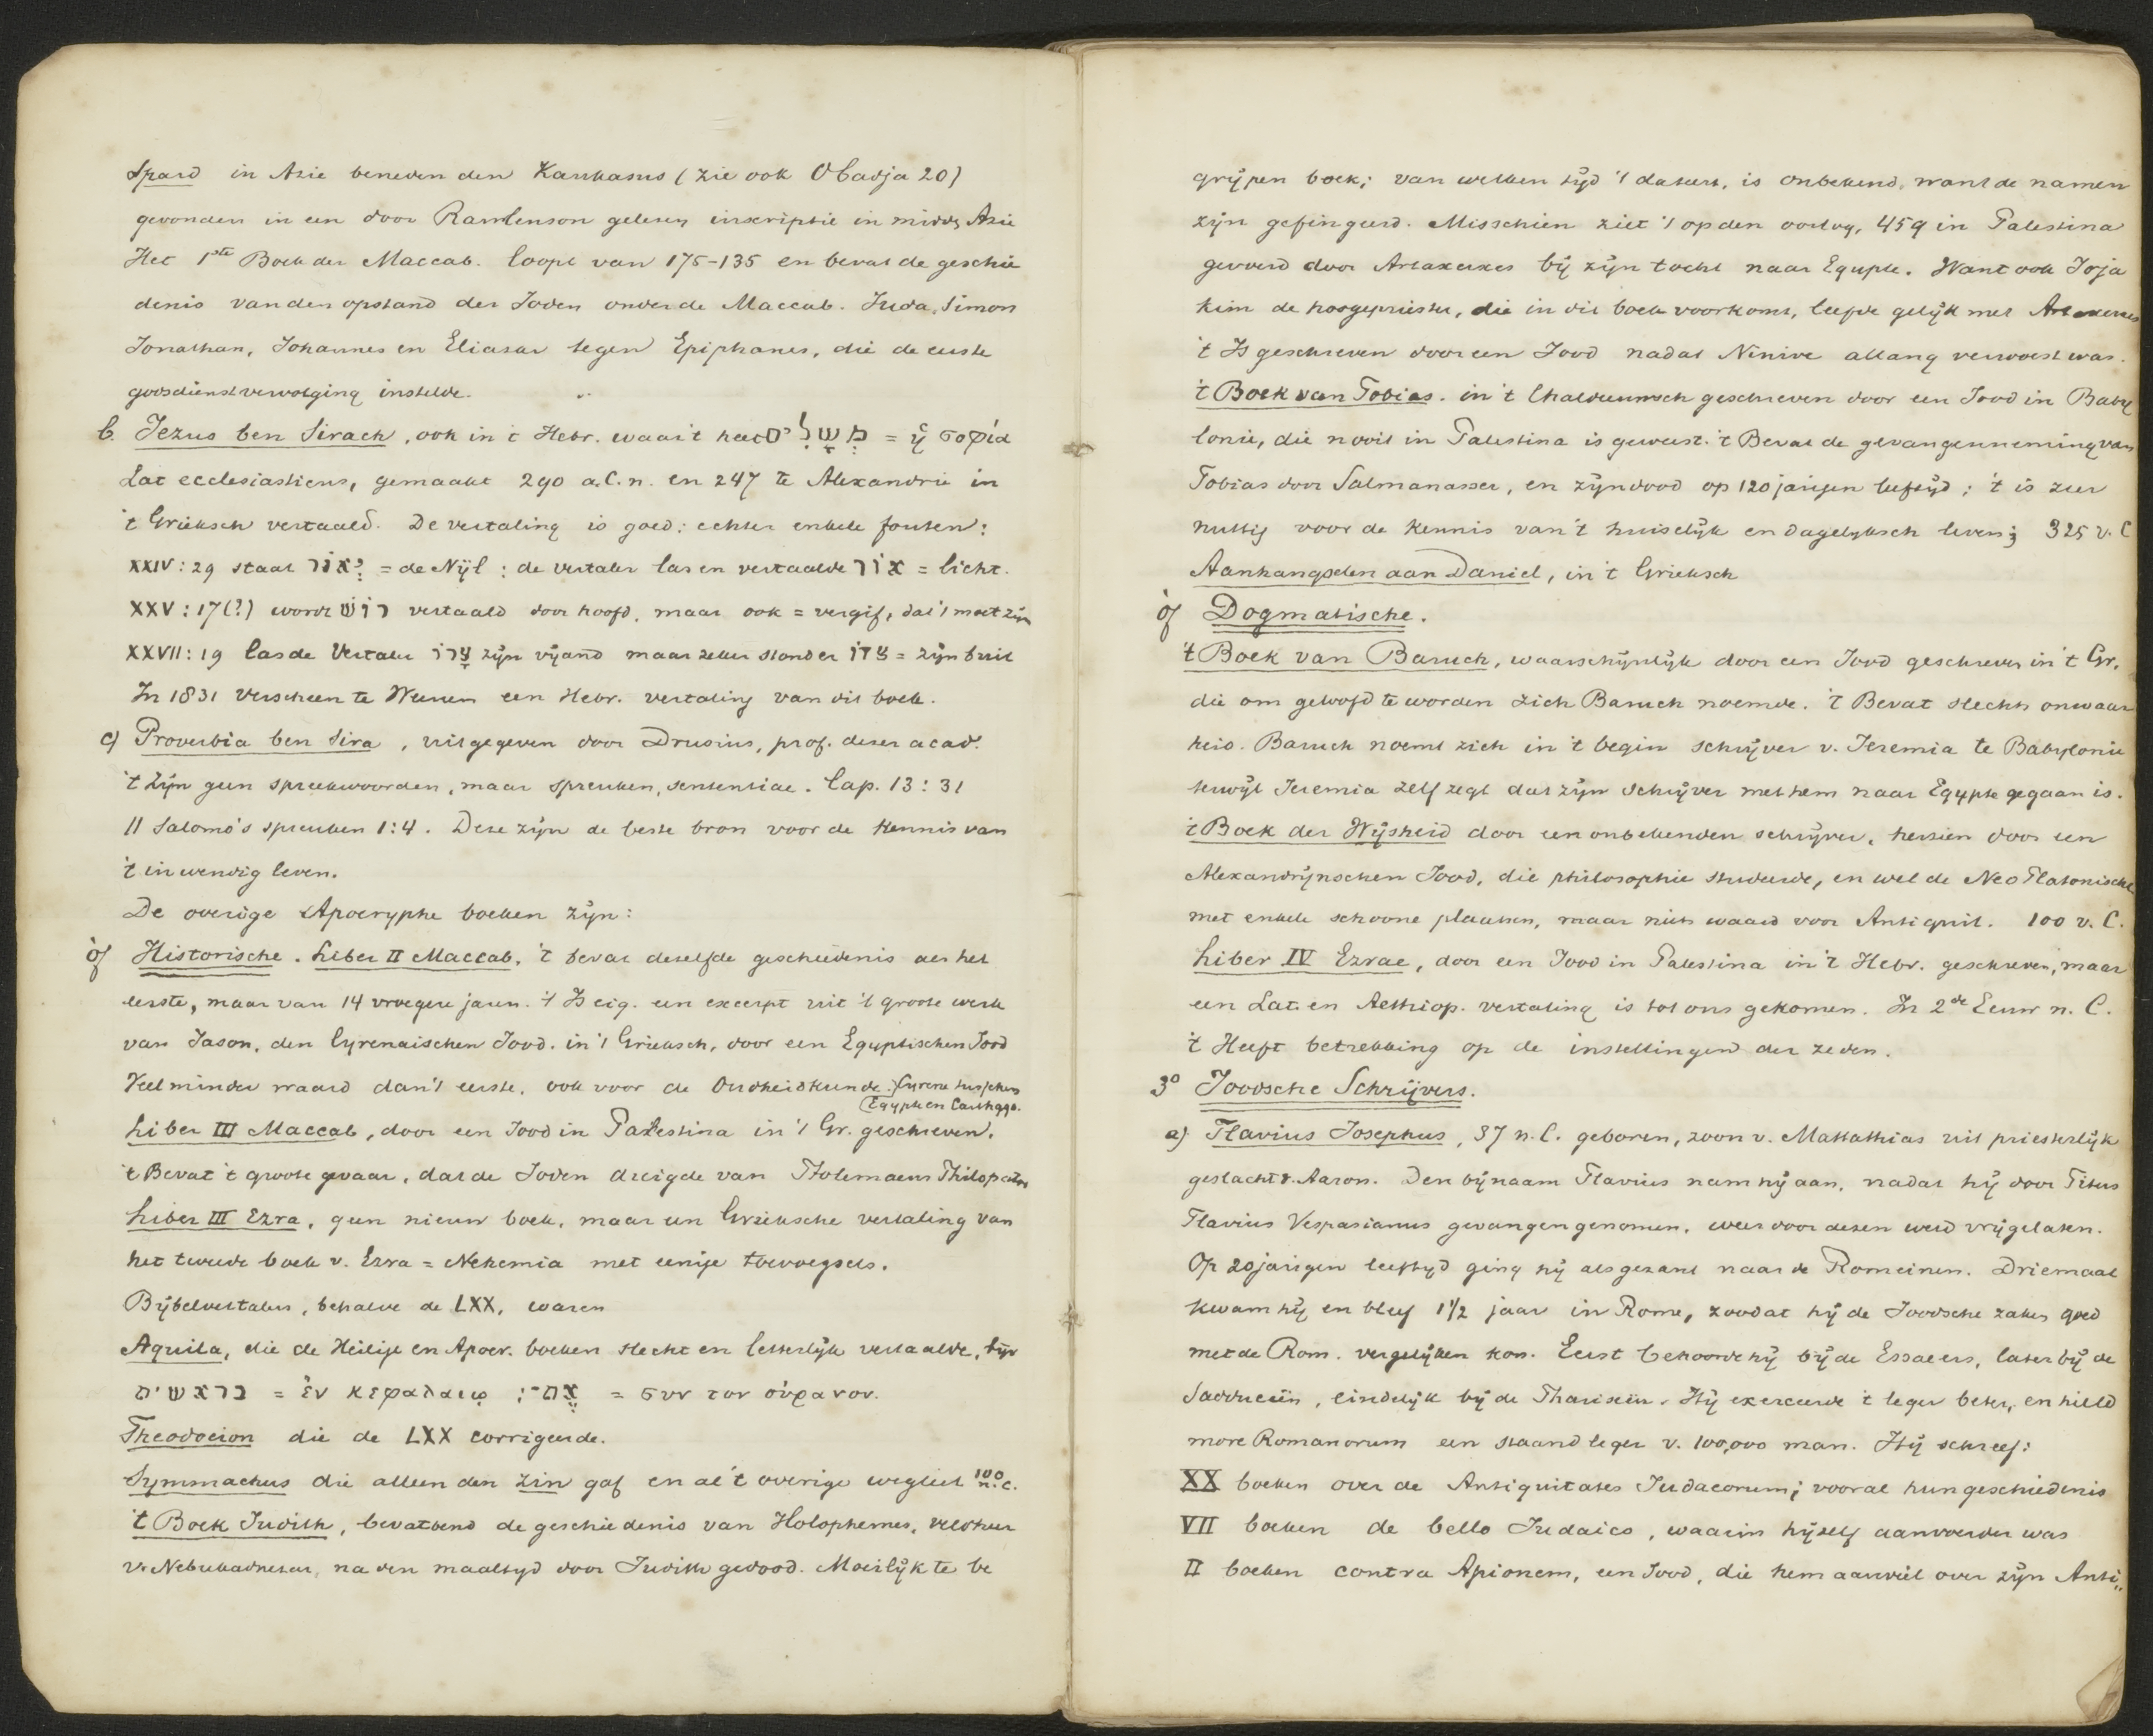 Spard in Azie beneden den Kaukasus (zie ook Obadja 20)
gevonden in een door Rawlenson gelezen inscriptie in midd. Azie
Het 1ste Boek der Maccab. loopt van 175-135 en bevat de geschie
denis van den opstand der Joden onder de Maccab. Juda, Simon
Jonathan, Johannes en Eliasar tegen Epiphanes, die de eerste
godsdienstvervolging instelde.
b. Jezus ben Sirach, ook in 't Hebr. waar 't heet מִשְׁלֵים = ἡ σοφία
Lat ecclesiasticus, gemaakt 290 a.C.n. en 247 te Alexandrie in
't Grieksch vertaald. De vertaling is goed; echter enkele fouten:
XXIV : 29 staat יְאוֹר = de Nijl : de vertaler las en vertaalde אוֹר = licht.
XXV : 17 (?) wordt רוֹשׁ vertaald door hoofd, maar ook = vergif, dat 't moet zijn
XXVII : 19 las de Vertaler צָרוֹ zijn vijand maar zeker stond er = zijn buit
In 1831 verscheen te Weenen een Hebr. vertaling van dit boek.
c) Proverbia ben Sira, uitgegeven door Drusius, prof. dezer acad.
't Zijn geen spreekwoorden, maar spreuken, sententiae. Cap. 13 : 31
|| Salomo's spreuken 1:4. Deze zijn de beste bron voor de kennis van
't inwendig leven.
De overige Apocryphe boeken zijn:
óf Historische. Liber II Maccab. 't bevat dezelfde geschiedenis als het
eerste, maar van 14 vroegere jaren. 't Is eig. een excerpt uit 't groote werk
van Jason, den Cyrenaischen Jood. in 't Grieksch, door een Egyptischen Jood
Veel minder waard dan 't eerste, ook voor de Oudheidkunde. (Cyrene tusschen
Egypte en Carthago.
Liber III Maccab, door een Jood in Palestina in 't Gr. geschreven.
't Bevat 't groote gevaar, dat de Joden dreigde van Ptolemaeus Philopator
Liber III Ezra, geen nieuw boek, maar een Grieksche vertaling van
het tweede boek v. Ezra = Nehemia met eenige toevoegsels.
Bijbelvertalers, behalve de LXX, waren
Aquila, die de Heilige en Apocr. boeken slecht en letterlijk vertaalde, bijv
בראשית = ἐν κεφαλαιῳ ; את = συν τον οὐρανον.
Theodocion die de LXX corrigeerde.
Symmachus die alleen den zin gaf en al 't overige wegliet 100 n.C.
't Boek Judith, bevattend de geschiedenis van Holophernes, veldheer
v. Nebukadnesar, na den maaltyd door Judith gedood. Moeilijk te be
grijpen boek; van welken tijd 't dateert, is onbekend, want de namen
zijn gefingeerd. Misschien ziet 't op den oorlog, 459 in Palestina
gevoerd door Artaxerxes bij zijn tocht naar Egypte. Want ook Joja
kim de hoogepriester, die in dit boek voorkomt, leefde gelijk met Artaxerxes
't Is geschreven door een Jood nadat Ninive allang verwoest was.
't Boek van Tobias. in 't Chaldeeuwsch geschreven door een Jood in Baby
lonie, die nooit in Palestina is geweest. 't Bevat de gevangenneming van
Tobias door Salmanasser, en zijn dood op 120 jarigen leeftijd ; 't is zeer
nuttig voor de kennis van 't huiselijk en dagelyksch leven; 325 v. C
Aanhangselen aan Daniel, in 't Grieksch
óf Dogmatische.
't Boek van Baruch, waarschijnlijk door een Jood geschreven in 't Gr.
die om geloofd te worden zich Baruch noemde. 't Bevat slechts onwaar
heid. Baruch noemt zich in 't begin schrijver v. Jeremia te Babylonie
terwijl Jeremia zelf zegt dat zijn schrijver met hem naar Egypte gegaan is.
't Boek der Wijsheid door een onbekenden schrijver, herzien door een
Alexandrijnschen Jood, die philosophie studeerde, en wel de NeoPlatonische
met enkele schoone plaatsen, maar niets waard voor Antiquit. 100 v. C.
Liber IV Ezrae, door een Jood in Palestina in 't Hebr. geschreven, maar
een Lat. en Aethiop. vertaling is tot ons gekomen. In 2de Eeuw n. C.
't Heeft betrekking op de instellingen der zeden.
3o Joodsche Schrijvers.
a) Flavius Josephus, 37 n. C. geboren, zoon v. Mattathias uit priesterlijk
geslacht v. Aaron. Den bijnaam Flavius nam hij aan, nadat hij door Titus
Flavius Vespasianus gevangen genomen, weer door dezen werd vrijgelaten.
Op 20jarigen leeftyd ging hij als gezant naar de Romeinen. Driemaal
kwam hij en bleef 1 1/2 jaar in Rome, zoodat hij de Joodsche zaken goed
met de Rom. vergelijken kon. Eerst behoorde hij bij de Essaeers, later bij de
Sadduceën, eindelijk bij de Phariseën. Hij exerceerde 't leger beter, en hield
more Romanorum een staand leger v. 100,000 man. Hij schreef:
XX boeken over de Antiquitates Judaeorum; vooral hun geschiedenis
VII boeken de bello Judaico, waarin hijzelf aanvoerder was
II boeken contra Apionem, een Jood, die hem aanviel over zijn Anti„